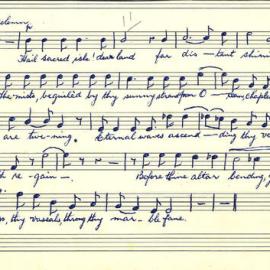 Hail sacred isle! dear land far dis-tant shinin
the mide, beguiled by thy sunny strand from O-cean,
are twi-ning. Eternal waves ascend-ing thy va
th re-gain-. Before thine altar bending,
thy vassals, throng thy mar-ble fane.